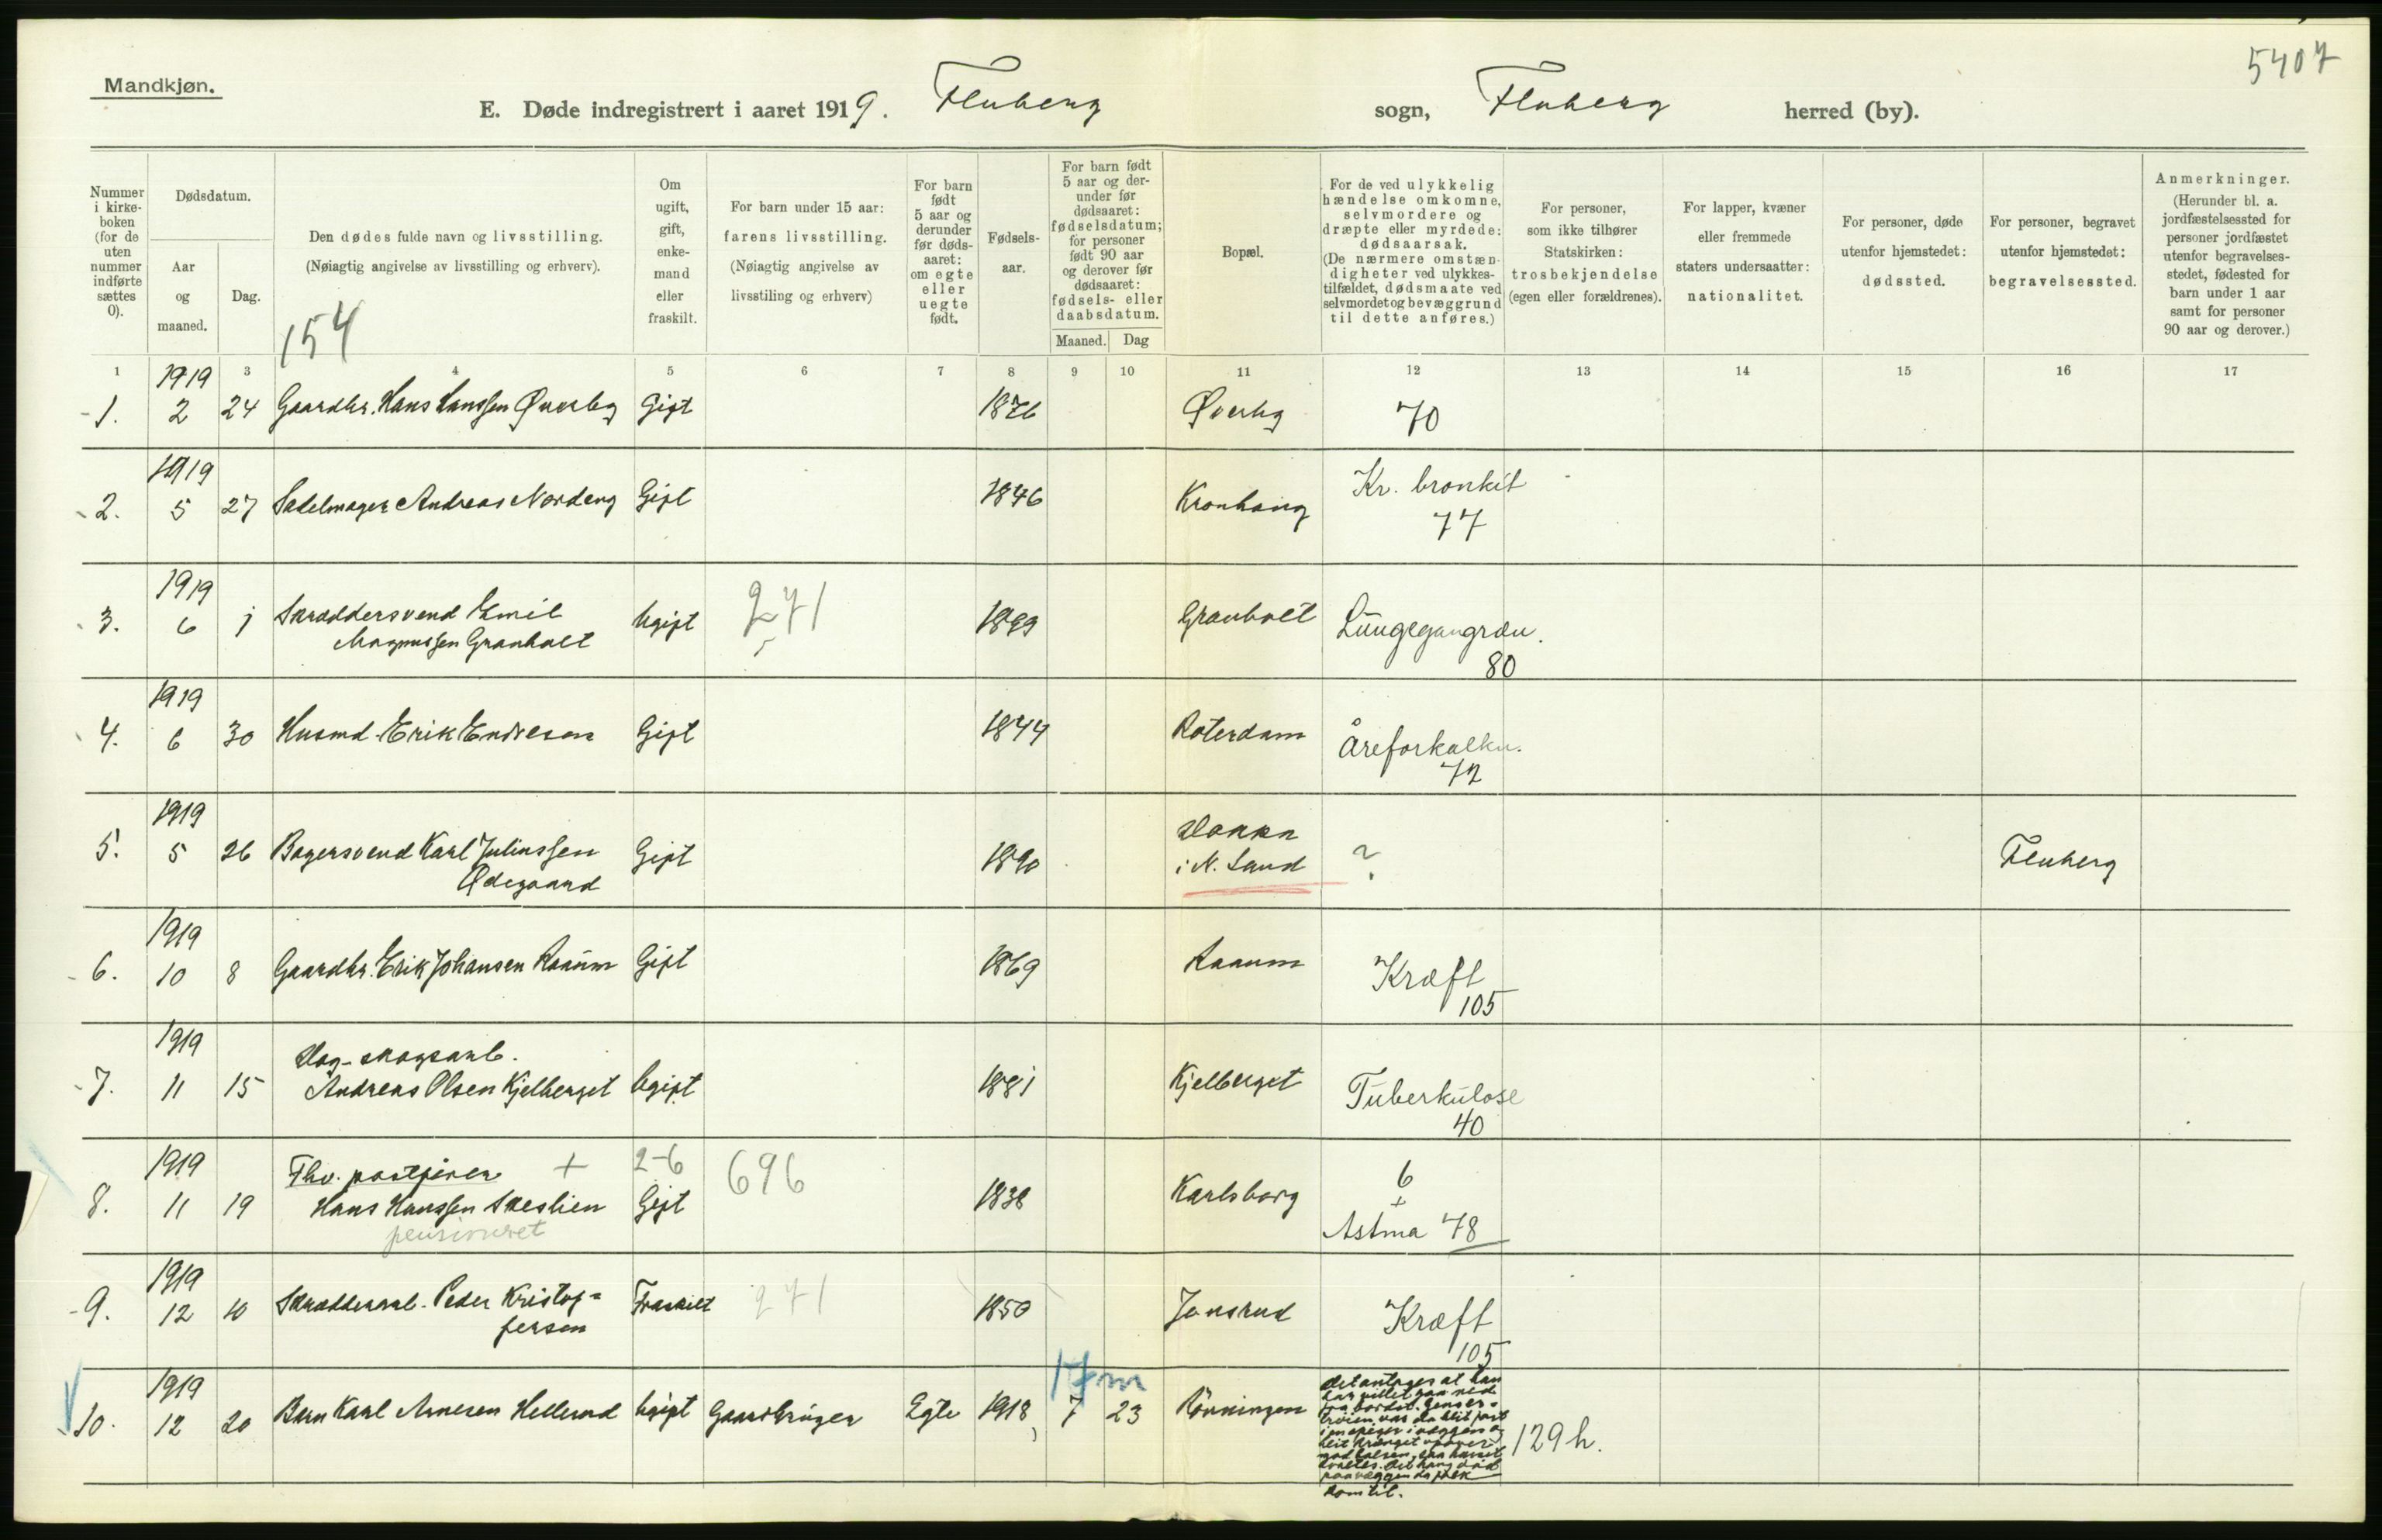 5407
Mandkjøn.
E. Døde indregistrert i aaret 1919. Fluberg sogn, Fluberg herred (by).
Nummer i kirkeboken (for de uten nummer indførte sættes 0).
Dødsdatum.
Aar og maaned.
Dag.
Den dødes fulde navn og livsstilling.
(Nøiagtig angivelse av livsstilling og erhverv).
154
Om ugift, gift, enkemand eller fraskilt.
For barn under 15 aar: farens livsstilling.
(Nøiagtig angivelse av livsstiling og erhverv)
For barn født 5 aar og derunder før dødsaaret: om egte eller uegte født.
Fødselsaar.
For barn født 5 aar og derunder før dødsaaret: fødselsdatum; for personer født 90 aar og derover før dødsaaret: fødsels- eller daabsdatum.
Maaned. Dag
Bopæl.
For de ved ulykkelig hændelse omkomne, selvmordere og dræpte eller myrdede: dødsaarsak.
(De nærmere omstændigheter ved ulykkestilfældet, dødsmaate ved selvmordet og bevæggrund til dette anføres.)
For personer, som ikke tilhører Statskirken: trosbekjendelse (egen eller forældrenes).
For lapper, kvæner eller fremmede staters undersaatter: nationalitet.
For personer, døde utenfor hjemstedet: dødssted.
For personer, begravet utenfor hjemstedet: begravelsessted.
Anmerkninger.
(Herunder bl. a. jordfæstelsessted for personer jordfæstet utenfor begravelsesstedet, fødested for barn under 1 aar samt for personer 90 aar og derover.)
1 3 4 5 6 7 8 9 10 11 12 13 14 15 16 17
1919
1. 2 24 Gaardbr. Hans Hanssen Øverby Gift 1876 Øverby 70
1919
2. 5 27 Sadelmager Andreas Nordeng Gift 1846 Kronhaug Kr. bronkit
77
1919
3. 6 1 Skræddersvend Emil Ugift 271 1899 Granholt Lungegangræn.
Magnussen Granholt
80
1919
4. 6 30 Husmd. Erik Endresen Gift 1844 Roterdam Åreforkalkn.
72
1919
5. 5 26 Bagersvend Karl Juliussen Gift 1890 Dokka
i N. Land ? Fluberg
Ødegaard
1919
6. 10 8 Gaardbr. Erik Johansen Raaum Gift 1869 Raaum Kræft
105
1919
Dag-skogsarb.
7. 11 15 Andreas Olsen Kjelberget Ugift 1881 Kjelberget Tuberkulose
40
1919 Fhv. postfører + 2-6 696 6
+
8. 11 19 Hans Hanssen Skeslien Gift 1838 Karlsborg Astma 78
pensioneret
1919
9. 12 10 Skrædderarb. Peder Kristof=
fersen Fraskilt 271 1850 Jonsrud Kræft
105
17 m
1919
10. 12 20 Barn Karl Arnesen Hellerud Ugift Gaardbruger Egte 1918 7 23 Rönningen
det antages at han
har villet gaa ned
fra bordet.
129 h.
kom til.